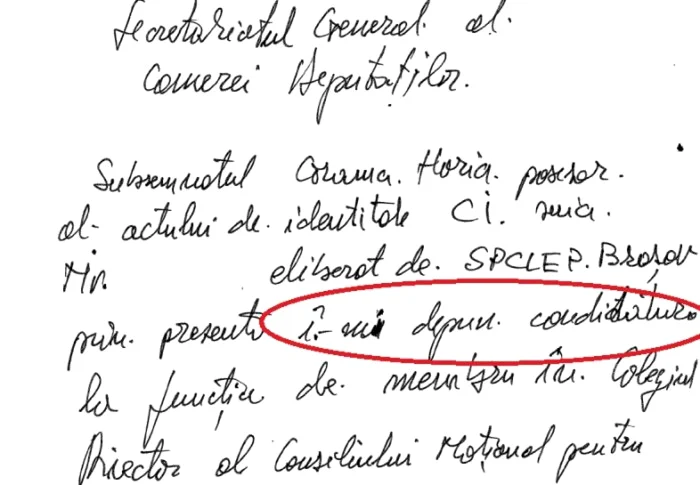 Secretariatul General al
Camerei Deputaților.
Subsemnatul Grama Horia posesor
al actului de identitate CI. seria.
Nr. eliberat de SPCLEP. Brașov
prin prezenta î-mi depun candidatura
la funcția de membru în Colegiul
Director al Consiliului Național pentru